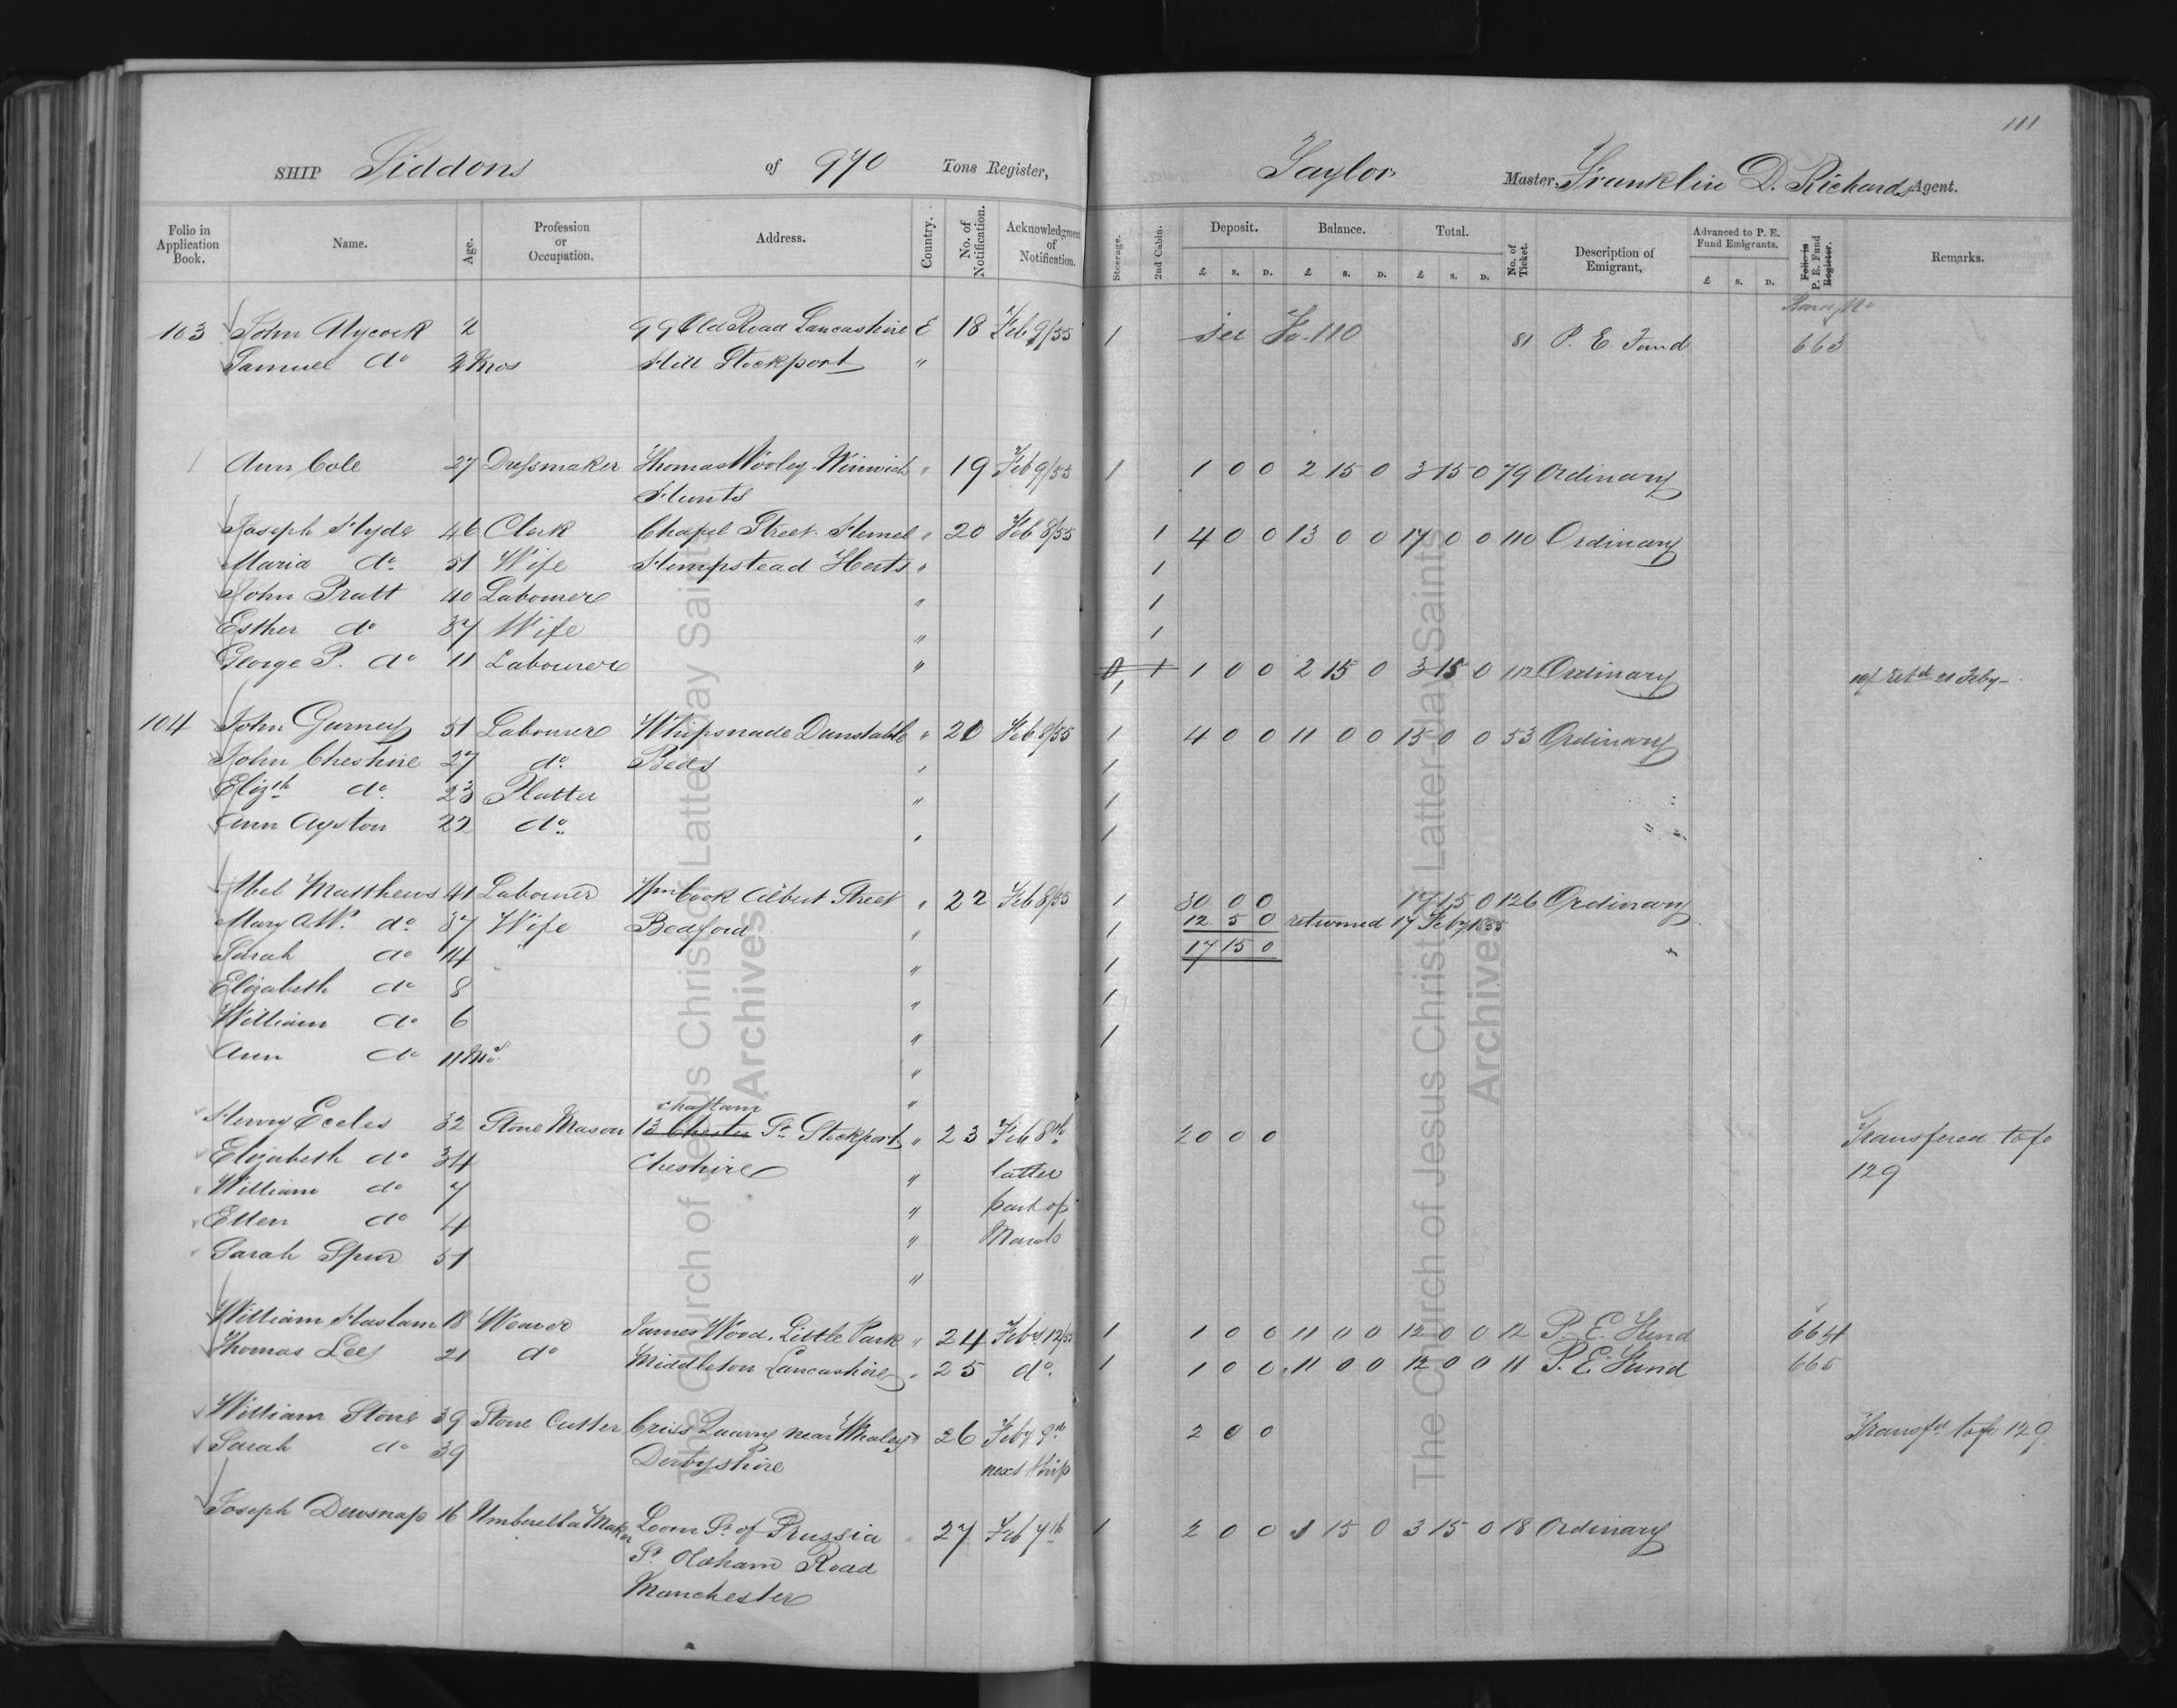 111
SHIP Siddons of 970 Tons Register, Taylor Master, Franklin D. Richards Agent.
Folio in Application Book. Name. Age. Profession or Occupation. Address. Country. No. of Notification. Acknowledgment of Notification. Steerage. 2nd Cabin. Deposit. Balance. Total. No. of Ticket. Description of Emigrant, Advanced to P. E. Fund Emigrants. Folio in P. E. Fund Register. Remarks.
£ S. D. £ S. D. £ S. D. £ S. D.
103 John Alycock 2 99 Old Road Lancashire E 18 Feb 9/55 1 See Fo. 110 81 P. E. Fund 663
Samuel do 2 Mos Hill Stockport "
Ann Cole 27 Dressmaker Thomas Wooley Winwick " 19 Feb 9/55 1 1 0 0 2 15 0 3 15 0 79 Ordinary
Hunts
Joseph Hyde 46 Clerk Chapel Street Hemel " 20 Feb 8/55 1 4 0 0 13 0 0 17 0 0 110 Ordinary
Maria do 51 Wife Hempstead Herts " 1
John Pratt 40 Labourer " 1
Esther do 37 Wife " 1
George P. do 11 Labourer " 0 1 1 0 0 2 15 0 3 15 0 112 Ordinary 10/ retd 21 Feby
1
104 John Gurney 51 Labourer Whipsnade Dunstable " 20 Feb 8/55 1 4 0 0 11 0 0 15 0 0 53 Ordinary
John Cheshire 27 do Beds " 1
Elizth do 23 Platter " 1
Ann Ayston 22 do " 1
Abel Matthews 41 Labourer Wm Cook Albert Street " 22 Feb 8/55 1 30 0 0 17 15 0 126 Ordinary
Mary A.W. do 37 Wife Bedford " 1 12 5 0 returned 17 Feby 1855
Sarah do 14 " 1 17 15 0
Elizabeth do 8 " 1
William do 6 " 1
Ann do 11 Mos "
Chattam
Henry Eccles 32 Stone Mason 13 Chester St Stockport " 23 Feb 8th 20 0 0 Transfered to fo
Elizabeth do 34 Cheshire " latter 129
William do 7 " part of
Ellen do 4 " March
Sarah Spur 51 "
William Haslam 18 Weaver James Wood, Little Park " 24 Feby 12/55 1 1 0 0 11 0 0 12 0 0 12 P. E. Fund 664
Thomas Lees 21 do Middleton Lancashire " 25 do 1 1 0 0 11 0 0 12 0 0 11 P. E. Fund 665
William Stone 39 Stone Cutter Criss Quarry near Whaley " 26 Feby 9th 2 0 0 Transfd to fo 129
Sarah do 39 Derbyshire next Ship
Joseph Dewsnap 16 Umberella Maker Loom St of Prussia 27 Feb 7th 1 2 0 0 1 15 0 3 15 0 18 Ordinary
St Oldham Road
Manchester
The Church of Jesus Christ of Latter-day Saints
Archives
The Church of Jesus Christ of Latter-day Saints
Archives